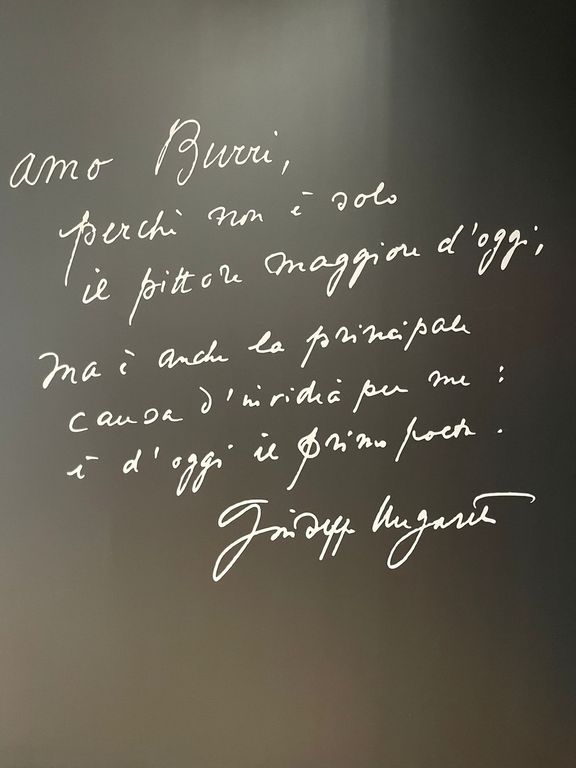 amo Burri,
perchè non è solo
il pittore maggiore d'oggi,
ma è anche la principale
causa d'invidia per me :
è d'oggi il primo poeta .
Giuseppe Ungaretti